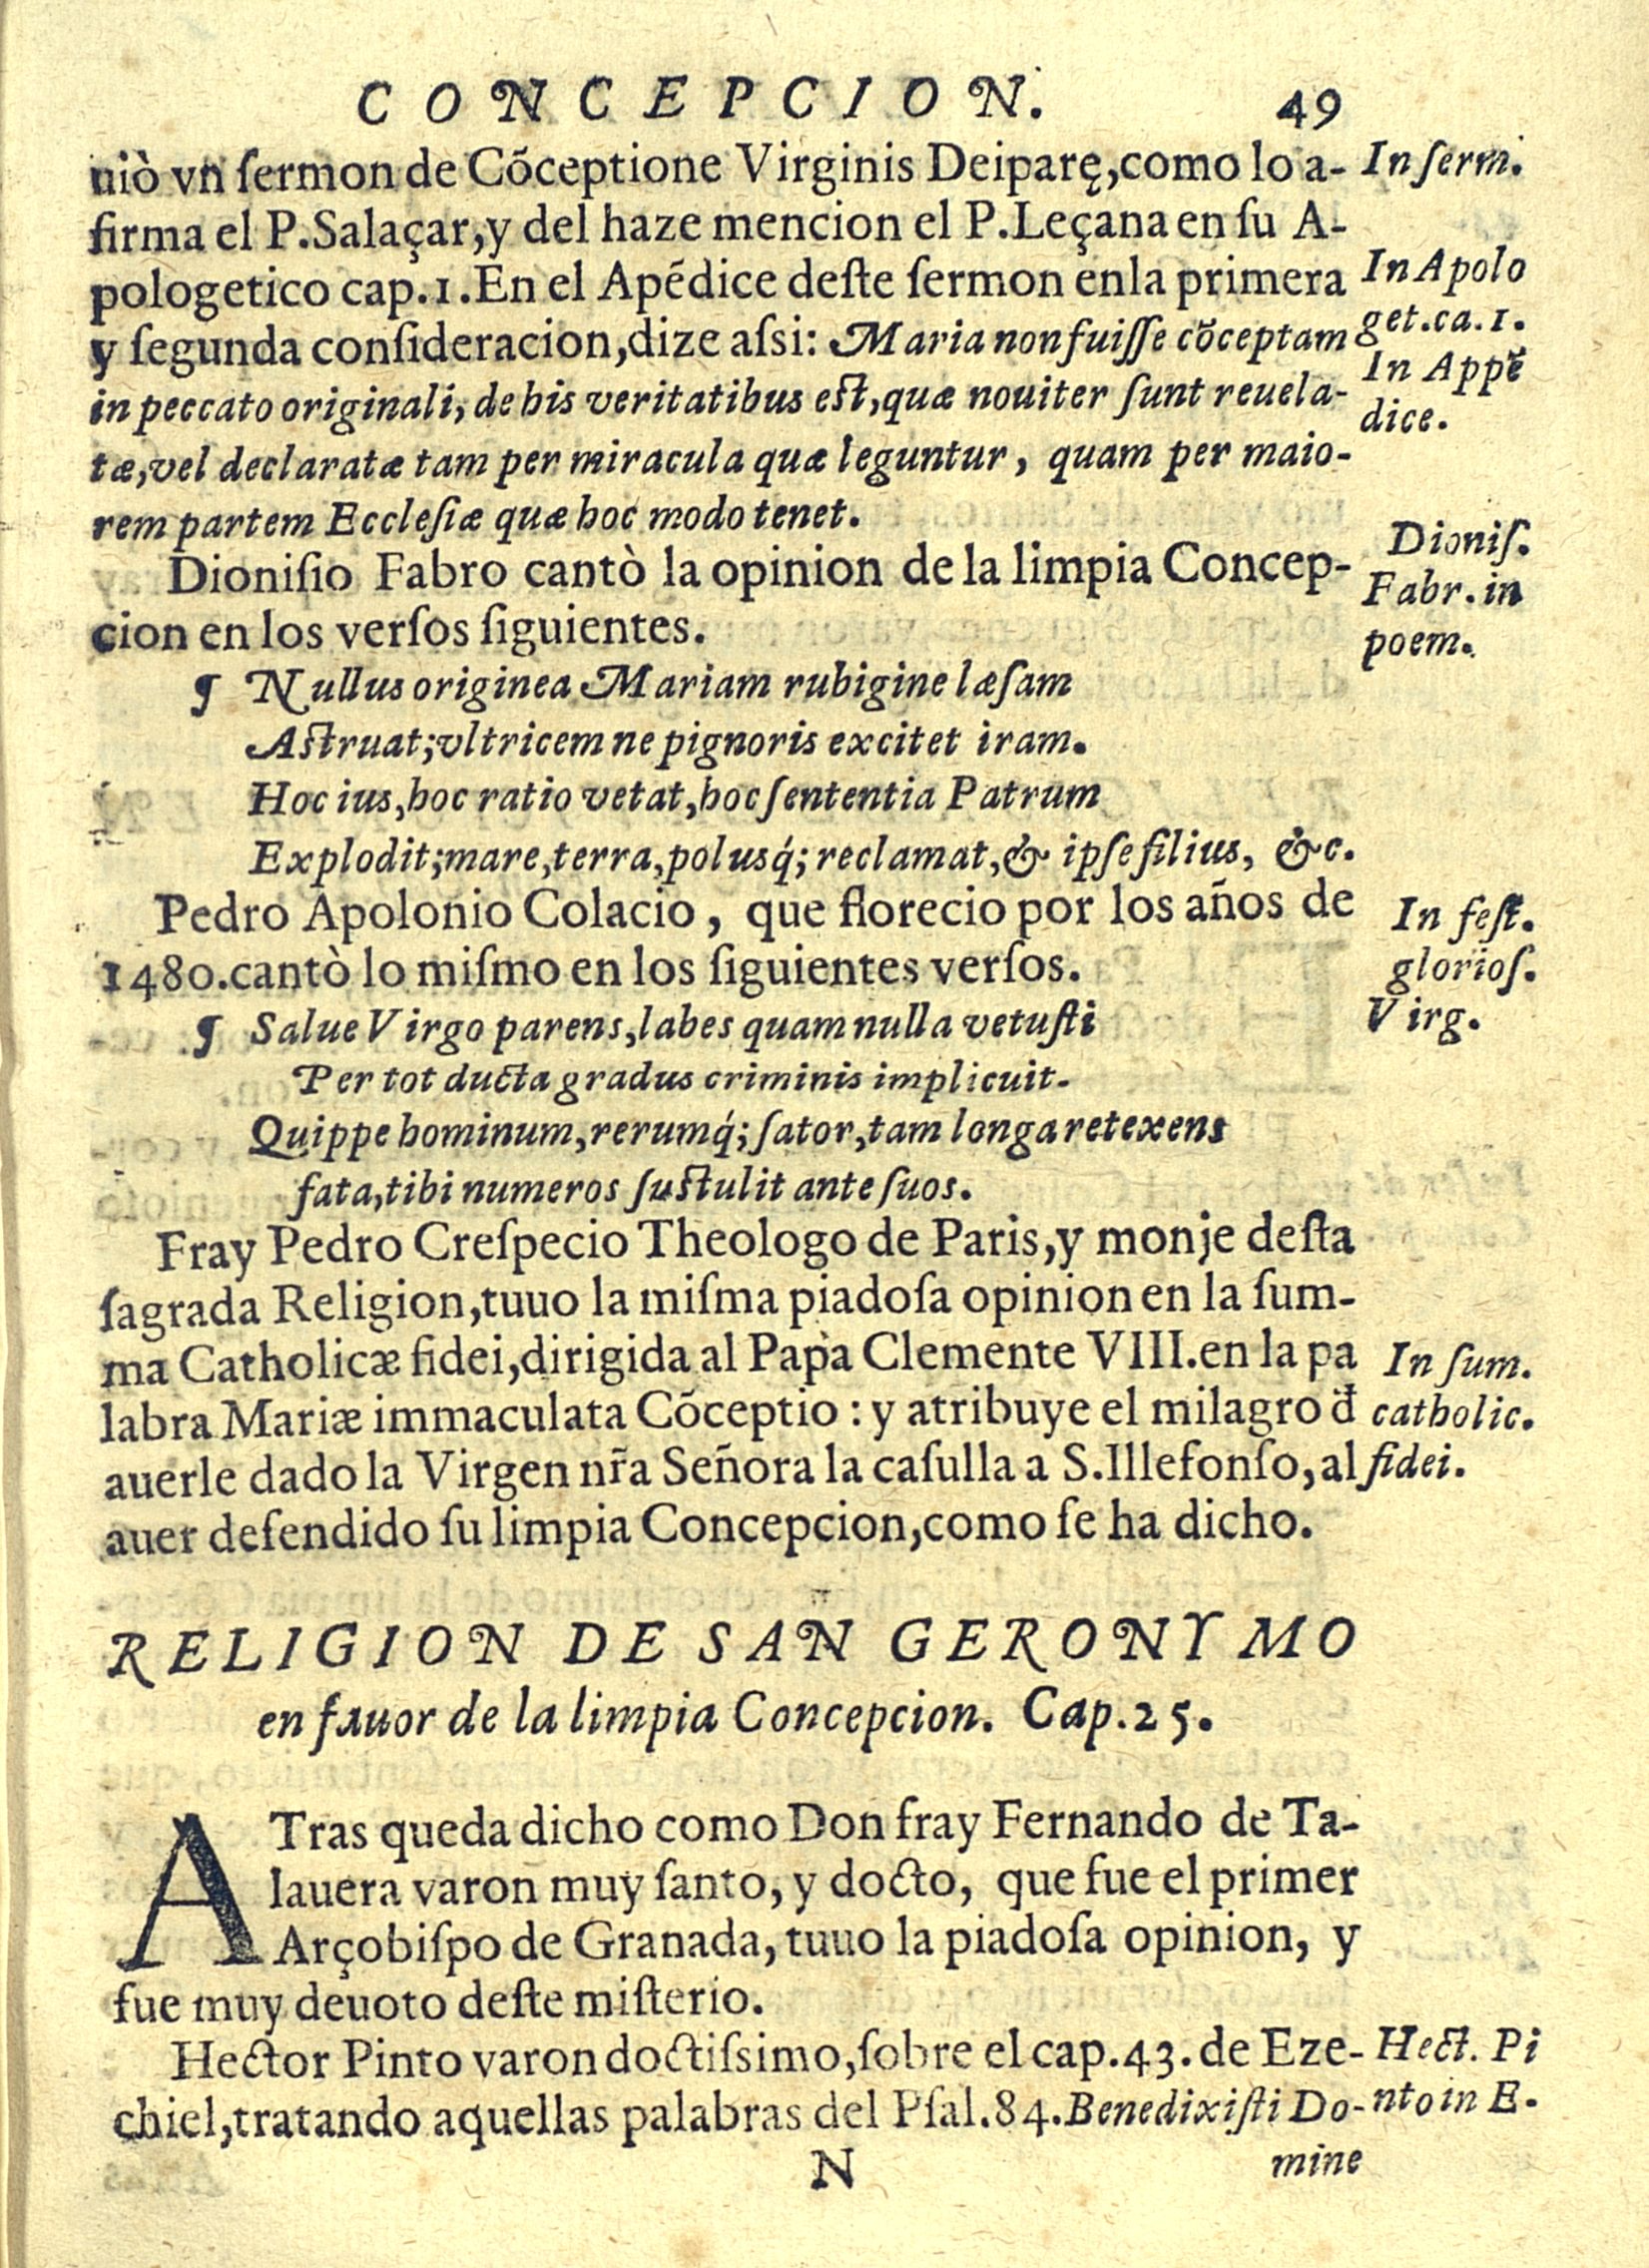 CONCEPCION. 49
uiò vn ſermon de Cõceptione Virginis Deiparę,como lo a-
firma el P.Salaçar,y del haze mencion el P.Leçana en ſu A-
pologetico cap.1.En el Apẽdice deſte ſermon enla primera
y ſegunda conſideracion,dize aſsi: Maria non fuiſſe cõceptam
in peccato originali, de his veritatibus eſt,quæ nouiter ſunt reuela-
tæ,vel declaratæ tam per miracula quæ leguntur, quam per maio-
rem partem Eccleſiæ quæ hoc modo tenet.
In ſerm.
In Apolo
get.ca.1.
In Appẽ
dice.
Dioniſio Fabro cantò la opinion de la limpia Concep-
cion en los verſos ſiguientes.
Dioniſ.
Fabr. in
poem.
¶ Nullus originea Mariam rubigine læſam
Aſtruat;vltricem ne pignoris excitet iram.
Hoc ius,hoc ratio vetat,hoc ſententia Patrum
Explodit;mare,terra,polusq́; reclamat,& ipſe filius, &c.
Pedro Apolonio Colacio, que florecio por los años de
1480.cantò lo miſmo en los ſiguientes verſos.
In feſt.
glorioſ.
Virg.
¶ Salue Virgo parens,labes quam nulla vetuſti
Per tot ducta gradus criminis implicuit.
Quippe hominum,rerumq́; ſator,tam longa retexens
fata,tibi numeros ſuſtulit ante ſuos.
Fray Pedro Creſpecio Theologo de Paris,y monje deſta
ſagrada Religion,tuuo la miſma piadoſa opinion en la ſum-
ma Catholicæ fidei,dirigida al Papa Clemente VIII.en la pa
labra Mariæ immaculata Cõceptio : y atribuye el milagro đ
auerle dado la Virgen nr̃a Señora la caſulla a S.Illefonſo,al
auer defendido ſu limpia Concepcion,como ſe ha dicho.
In ſum.
catholic.
fidei.
RELIGION DE SAN GERONYMO
en fauor de la limpia Concepcion. Cap.25.
ATras queda dicho como Don fray Fernando de Ta-
lauera varon muy ſanto, y docto, que fue el primer
Arçobiſpo de Granada, tuuo la piadoſa opinion, y
fue muy deuoto deſte miſterio.
Hector Pinto varon doctiſsimo,ſobre el cap.43.de Eze-
chiel,tratando aquellas palabras del Pſal.84.Benedixiſti Do-
Hect. Pi
nto in E.
N mine